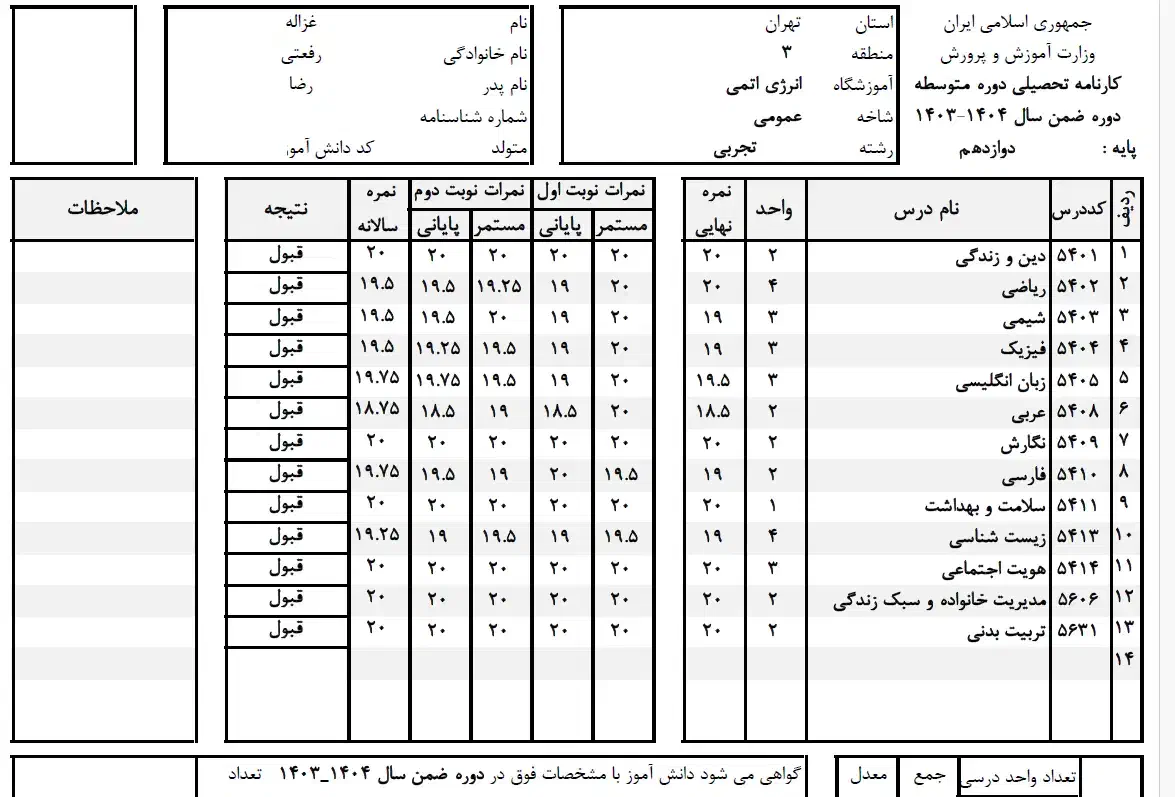 جمهوری اسلامی ایران
وزارت آموزش و پرورش
کارنامه تحصیلی دوره متوسطه
دوره ضمن سال ۱۴۰۴-۱۴۰۳
پایه : دوازدهم
استان تهران
منطقه ۳
آموزشگاه انرژی اتمی
شاخه عمومی
رشته تجربی
نام غزاله
نام خانوادگی رفعتی
نام پدر رضا
شماره شناسنامه
متولد کد دانش آموز
ردیف کددرس نام درس واحد نمره نهایی نمرات نوبت اول نمرات نوبت دوم نمره سالانه نتیجه ملاحظات
مستمر پایانی مستمر پایانی
۱ ۵۴۰۱ دین و زندگی ۲ ۲۰ ۲۰ ۲۰ ۲۰ ۲۰ ۲۰ قبول
۲ ۵۴۰۲ ریاضی ۴ ۲۰ ۲۰ ۱۹ ۱۹.۲۵ ۱۹.۵ ۱۹.۵ قبول
۳ ۵۴۰۳ شیمی ۳ ۱۹ ۲۰ ۱۹ ۲۰ ۱۹.۵ ۱۹.۵ قبول
۴ ۵۴۰۴ فیزیک ۳ ۱۹ ۲۰ ۱۹ ۱۹.۵ ۱۹.۲۵ ۱۹.۵ قبول
۵ ۵۴۰۵ زبان انگلیسی ۳ ۱۹.۵ ۲۰ ۱۹ ۱۹.۵ ۱۹.۷۵ ۱۹.۷۵ قبول
۶ ۵۴۰۸ عربی ۲ ۱۸.۵ ۲۰ ۱۸.۵ ۱۹ ۱۸.۵ ۱۸.۷۵ قبول
۷ ۵۴۰۹ نگارش ۲ ۲۰ ۲۰ ۲۰ ۲۰ ۲۰ ۲۰ قبول
۸ ۵۴۱۰ فارسی ۲ ۱۹ ۱۹.۵ ۲۰ ۱۹ ۱۹.۵ ۱۹.۷۵ قبول
۹ ۵۴۱۱ سلامت و بهداشت ۱ ۲۰ ۲۰ ۲۰ ۲۰ ۲۰ ۲۰ قبول
۱۰ ۵۴۱۳ زیست شناسی ۴ ۱۹ ۱۹.۵ ۱۹ ۱۹.۵ ۱۹ ۱۹.۲۵ قبول
۱۱ ۵۴۱۴ هویت اجتماعی ۳ ۲۰ ۲۰ ۲۰ ۲۰ ۲۰ ۲۰ قبول
۱۲ ۵۶۰۶ مدیریت خانواده و سبک زندگی ۲ ۲۰ ۲۰ ۲۰ ۲۰ ۲۰ ۲۰ قبول
۱۳ ۵۶۳۱ تربیت بدنی ۲ ۲۰ ۲۰ ۲۰ ۲۰ ۲۰ ۲۰ قبول
۱۴
تعداد واحد درسی جمع معدل
گواهی می شود دانش آموز با مشخصات فوق در دوره ضمن سال ۱۴۰۴_۱۴۰۳ تعداد